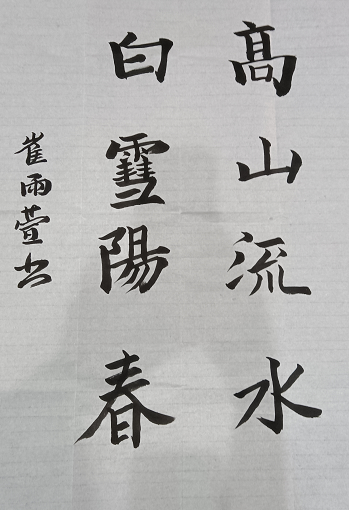 髙山流水
白雪陽春
崔雨萱书